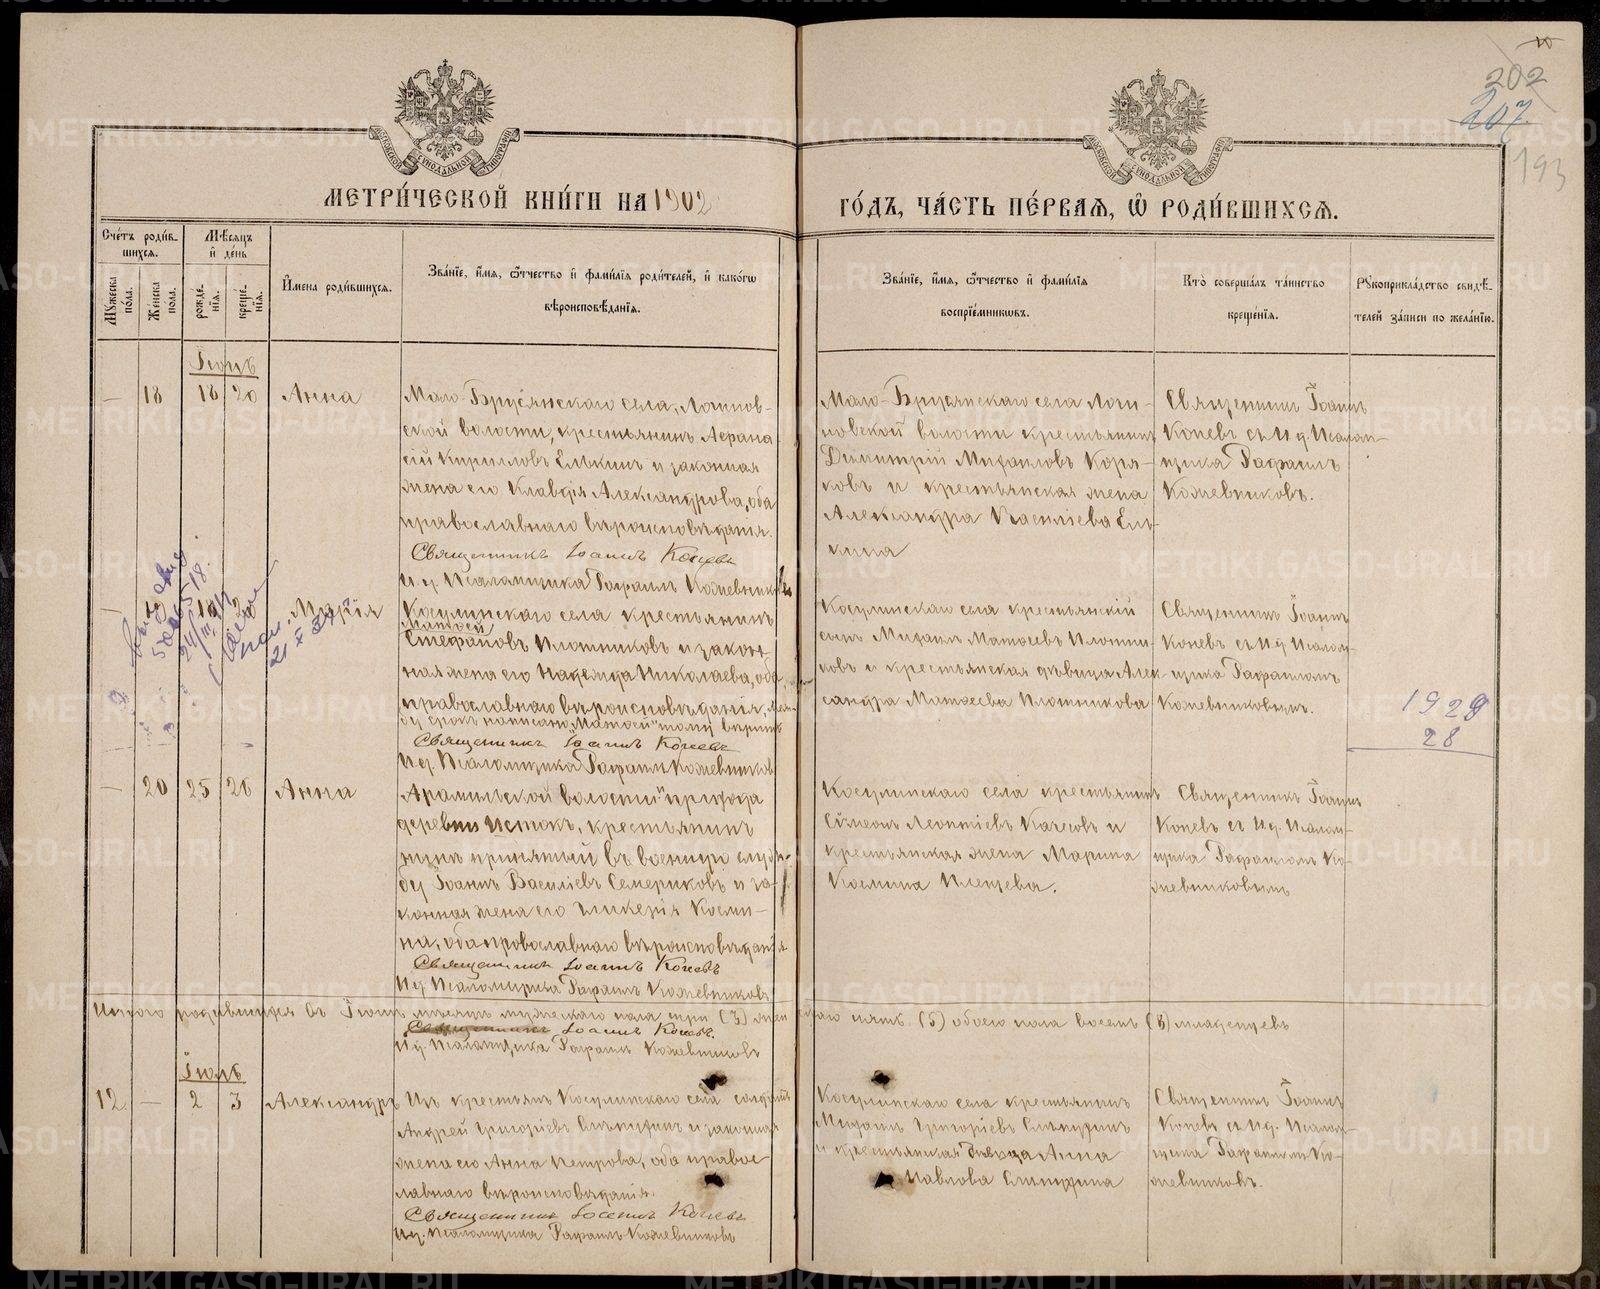 МЕТРИ́ЧЕСКОЙ КНИ́ГИ НА 1902
ГО́ДЪ, ЧА́СТЬ ПЕ́РВАѦ, Ѡ РОДИ́ВШИХСѦ.
202
207
193
Сче́тъ роди́в-
шихсѧ.
Мѣ́сѧцъ
и҆ де́нь
Мꙋ́жеска по́ла.
Же́нска по́ла.
рожде́-
нїѧ.
креще́-
нїѧ.
И҆мена̀ роди́вшихсѧ.
Зва́нїе, и҆́мѧ, ѻ҆́тчество и҆ фами́лїѧ роди́телей, и҆ како́гѡ
вѣроисповѣ́данїѧ.
Зва́нїе, и҆́мѧ, ѻ҆́тчество и҆ фами́лїѧ
воспрїе́мникѡвъ.
Кто̀ соверша́лъ та́инство
креще́нїѧ.
Рꙋкоприкла́дство свидѣ́-
телей за́писи по жела́нїю.
Іюнь
— 18 18 20 Анна
Мало-Брусянскаго села, Логинов-
ской волости, крестьянинъ Афана-
сій Кирилловъ Елькинъ и законная
жена его Клавдія Александрова, оба
православнаго вѣроисповѣданія.
Священникъ Іоаннъ Коневъ
И. д. Псаломщика Рафаилъ Кожевниковъ
Мало-Брусянскаго села Логи-
новской волости крестьянинъ
Димитрій Михаиловъ Коря-
ковъ и крестьянская жена
Александра Васильева Ель-
кина
Священникъ Іоаннъ
Коневъ съ И. д. Псалом-
щика Рафаилъ
Кожевниковъ.
Марія
Косулинскаго села крестьянинъ
Матѳей
Стефановъ Плотниковъ и закон-
ная жена его Надежда Николаева, оба
православнаго вѣроисповѣданія, Меж-
ду строкъ написано „Матѳей" тому вѣрить
Священникъ Іоаннъ Коневъ
И. д. Псаломщика Рафаилъ Кожевниковъ
Косулинскаго села крестьянскій
сынъ Михаилъ Матѳеевъ Плотни-
ковъ и крестьянская дѣвица Алек-
сандра Матѳеева Плотникова
Священникъ Іоаннъ
Коневъ съ И. д. Псалом-
щика Рафаиломъ
Кожевниковымъ.
1929
28
— 20 25 26 Анна
Арамильской волости прихода
деревни Истокъ, крестьянинъ
принятый въ военную служ-
бу Іоаннъ Василіевъ Семериковъ и за-
конная жена его Гликерія Косми-
на, оба православнаго вѣроисповѣданія
Священникъ Іоаннъ Коневъ
И. д. Псаломщика Рафаилъ Кожевниковъ
Косулинскаго села крестьянинъ
Симеонъ Леонтіевъ Качесовъ и
крестьянская жена Марина
Космина Плецева.
Священникъ Іоаннъ
Коневъ съ И. д. Псалом-
щика Рафаиломъ Ко-
жевниковымъ
Итого родившихся въ Іюнѣ мѣсяцѣ мужескаго пола три (3) женскаго пять (5) обоего пола восемь (8) младенцевъ
Священникъ Іоаннъ Коневъ.
И. д. Псаломщика Рафаилъ Кожевниковъ
Іюль
12 — 2 3 Александръ
Изъ крестьянъ Косулинскаго села солдатъ
Андрей Григоріевъ Слѣпухинъ и законная
жена его Анна Петрова, оба правос-
лавнаго вѣроисповѣданія.
Священникъ Іоаннъ Коневъ
И. д. Псаломщика Рафаилъ Кожевниковъ
Косулинскаго села крестьянинъ
Михаилъ Григоріевъ Слѣпухинъ
и крестьянская дѣвица Анна
Павлова Слѣпухина
Священникъ Іоаннъ
Коневъ съ И. д. Псалом-
щика Рафаилъ Ко-
жевниковъ.
METRIKI.GASO-URAL.RU